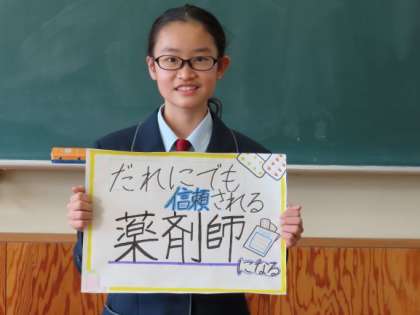 だれにでも
信頼される
薬剤師
になる